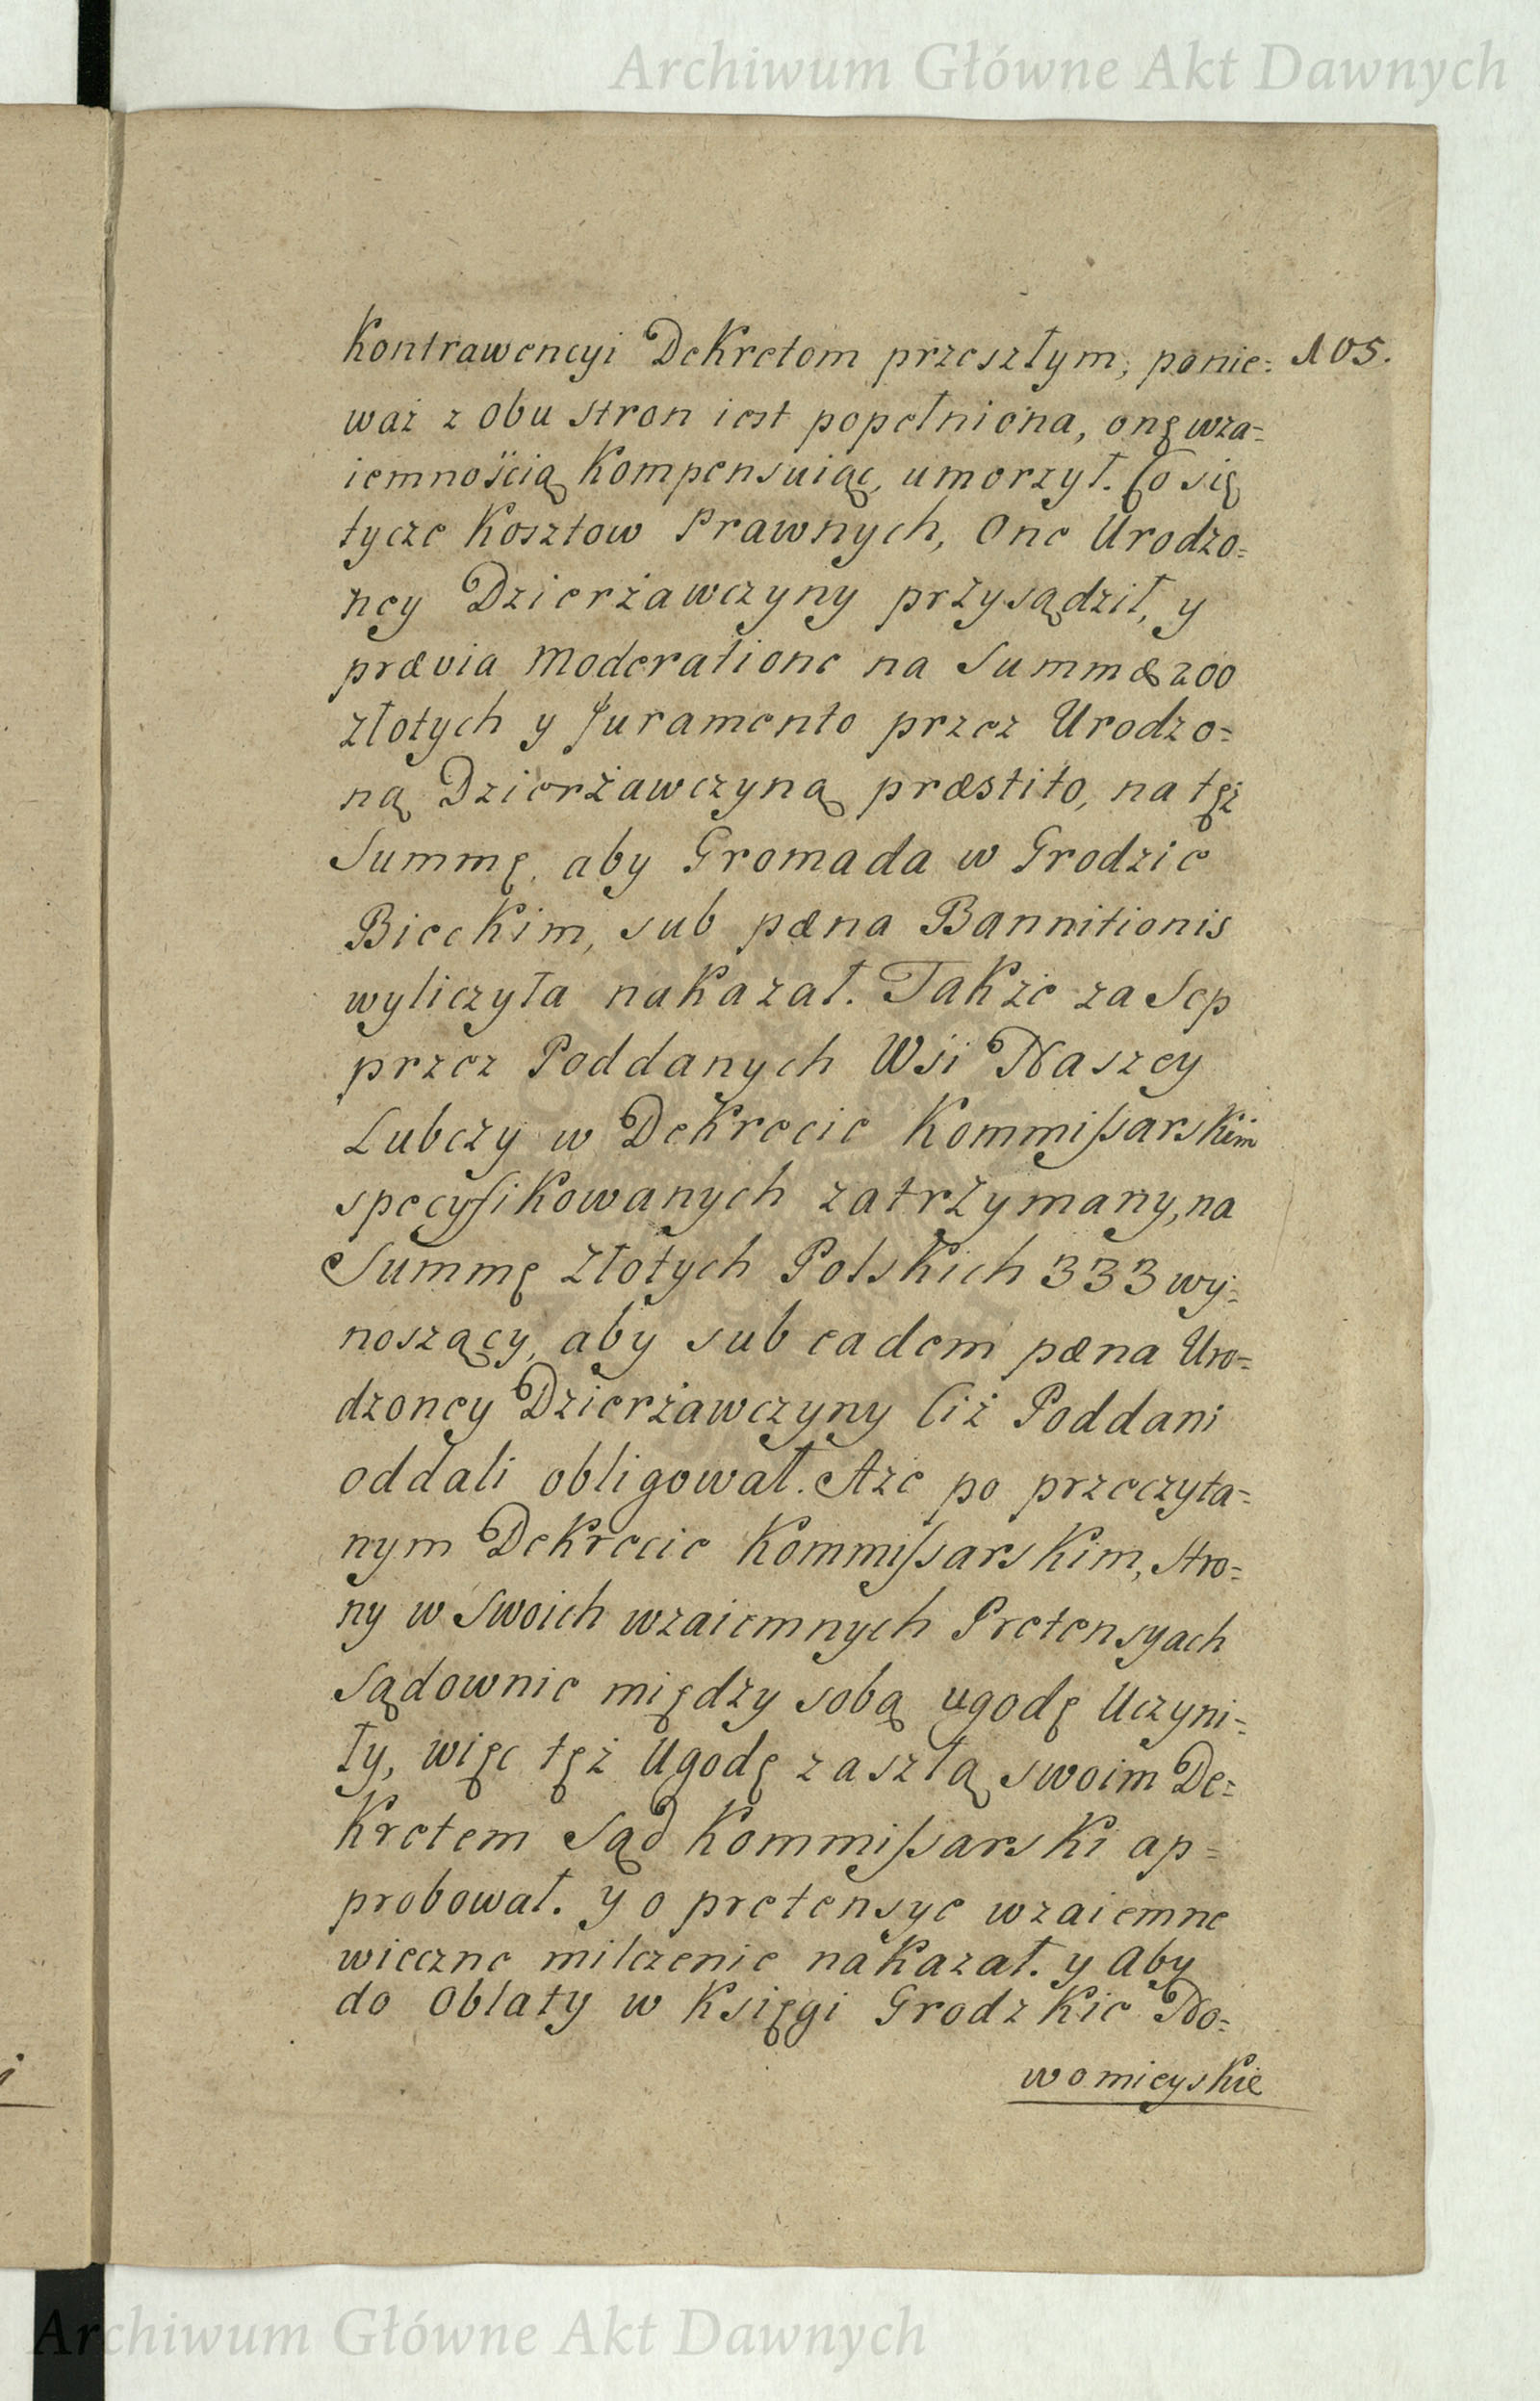 Archiwum Główne Akt Dawnych
Kontrawencyi Dekretom przeszłym, ponie= 105.
waż z obu stron iest popełniona, onę wza=
iemnością Kompensuiąc, umorzył. Co się
tycze Kosztow Prawnych, One Urodzo=
ney Dzierżawczyny przysądził, y
prævia Moderatione na Summæ 200
złotych y Juramento przez Urodzo=
ną Dzierżawczyną præstito, na tęż
Summę, aby Gromada w Grodzie
Bieckim, sub pæna Bannitionis
wyliczyła nakazał. Takze za Sep
przez Poddanych Wsi Naszey
Lubczy w Dekrecie Kommissarskim
specyfikowanych zatrzymany, na
Summę Złotych Polskich 333 wy=
noszący, aby sub eadem pæna Uro=
dzoney Dzierżawczyny Ciż Poddani
oddali obligował. Aze po przeczyta=
nym Dekrecie Kommissarskim, stro=
ny w swoich wzaiemnych Pretensyach
Sądownie między sobą ugodę Uczyni=
ły, więc tęż Ugodę zaszłą swoim De=
kretem Sąd Kommissarski ap=
probował. y o pretensye wzaiemne
wieczne milczenie nakazał. y aby
do Oblaty w Księgi Grodzkie No=
womieyskie
Archiwum Główne Akt Dawnych